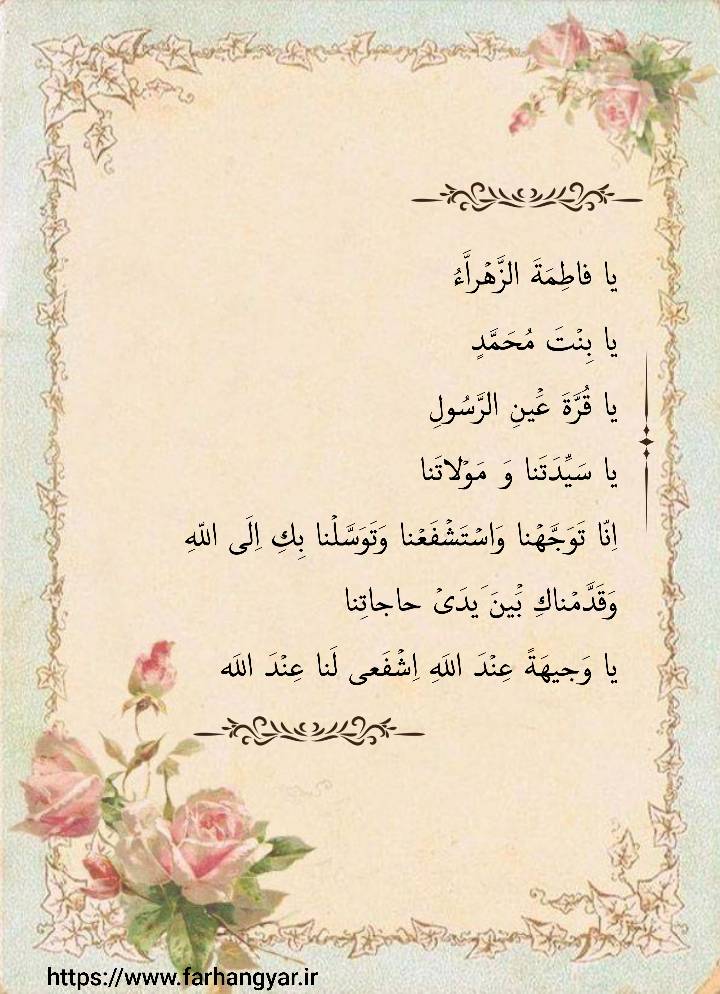 یا فاطِمَةَ الزَّهْراَّءُ
یا بِنْتَ مُحَمَّدٍ
یا قُرَّةَ عَیْنِ الرَّسُولِ
یا سَیِّدَتَنا وَ مَوْلاتَنا
اِنّا تَوَجَّهْنا وَاسْتَشْفَعْنا وَتَوَسَّلْنا بِكِ اِلَی اللّهِ
وَقَدَّمْناكِ بَیْنَ یَدَیْ حاجاتِنا
یا وَجیهَةً عِنْدَ اللهِ اِشْفَعی لَنا عِنْدَ الله
https://www.farhangyar.ir